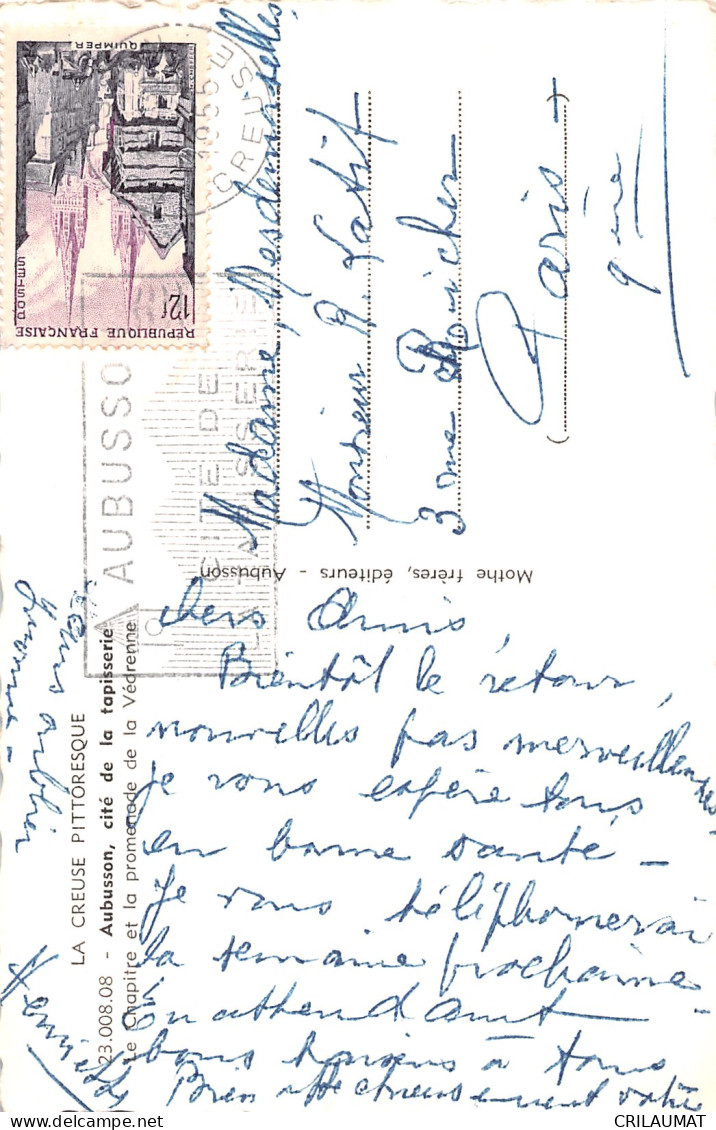 QUIMPER
POSTES
12f
RÉPUBLIQUE FRANÇAISE
1955
CREUSE
AUBUSSON
CITE DE
LA TAPISSERIE
Madame, Mesdemoiselles,
Monsieur R. Latif
3 rue Roucher
Paris -
9ème
Mothe frères, éditeurs - Aubusson
LA CREUSE PITTORESQUE
23.008.08 - Aubusson, cité de la tapisserie
Le Chapitre et la promenade de la Védrenne
Chers Amis,
Bientôt le retour,
nouvelles pas merveilleuses.
Je vous espère tous
en bonne santé -
Je vous téléphonerai
la semaine prochaine -
En attendant
bons baisers à tous
Bien affectueusement votre
Henriette
sans oublier
Yvonne -
CRILAUMAT